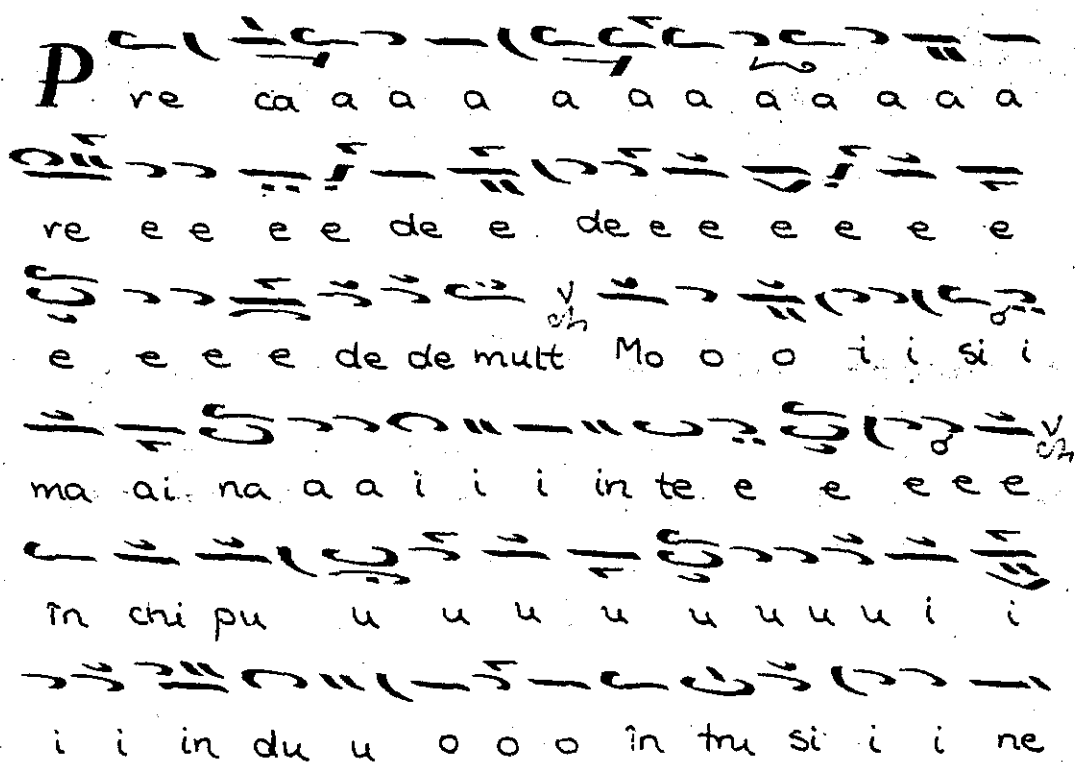 Pre ca a a a a a a a a a a a
re e e e e de e de e e e e e e
e e e e de de mult Mo o o i i si i
ma ai na a a i i i in te e e e e e
în chi pu u u u u u u u u i i
i i in du u o o o în tru si i i ne